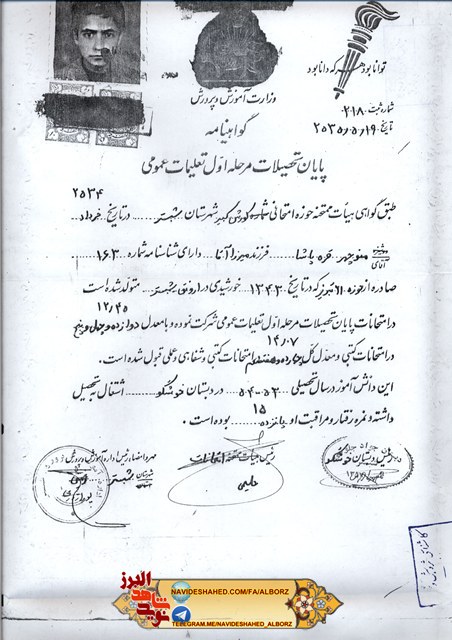 توانا بود هر که دانا بود
وزارت آموزش و پرورش
شماره ثبت ۲۱۸
گواهینامه
تاریخ ۲۵۳۵/۵/۱۹
پایان تحصیلات مرحله اول تعلیمات عمومی
۲۵۳۴
طبق گواهی هیأت ممتحنه حوزه امتحانی شهرستان شبستر در تاریخ خرداد
دوشیزه
آقای منوچهر قره پاشا فرزند میرزا آقا دارای شناسنامه شماره ۱۶۳
صادره از حوزه تبریز که در تاریخ ۱۳۴۳ خورشیدی در شبستر متولد شده است
۱۲/۴۵
در امتحانات پایان تحصیلات مرحله اول تعلیمات عمومی شرکت نموده و با معدل دوازده و چهل و پنج
۱۴/۰۷
در امتحانات کتبی و معدل کل چهارده و هفت صدم امتحانات کتبی و شفاهی و عملی قبول شده است.
این دانش آموز در سال تحصیلی ۵۳-۵۴ در دبستان خوشگو اشتغال به تحصیل
۱۵
داشته و نمره رفتار و مراقبت او پانزده بوده است.
مهر و امضاء رئیس اداره آموزش و پرورش
شهرستان شبستر
رئیس هیأت ممتحنه امتحانات
رئیس دبستان خوشگو
نوید شاهد البرز
NAVIDESHAHED.COM/FA/ALBORZ
TELEGRAM.ME/NAVIDESHAHED_ALBORZ